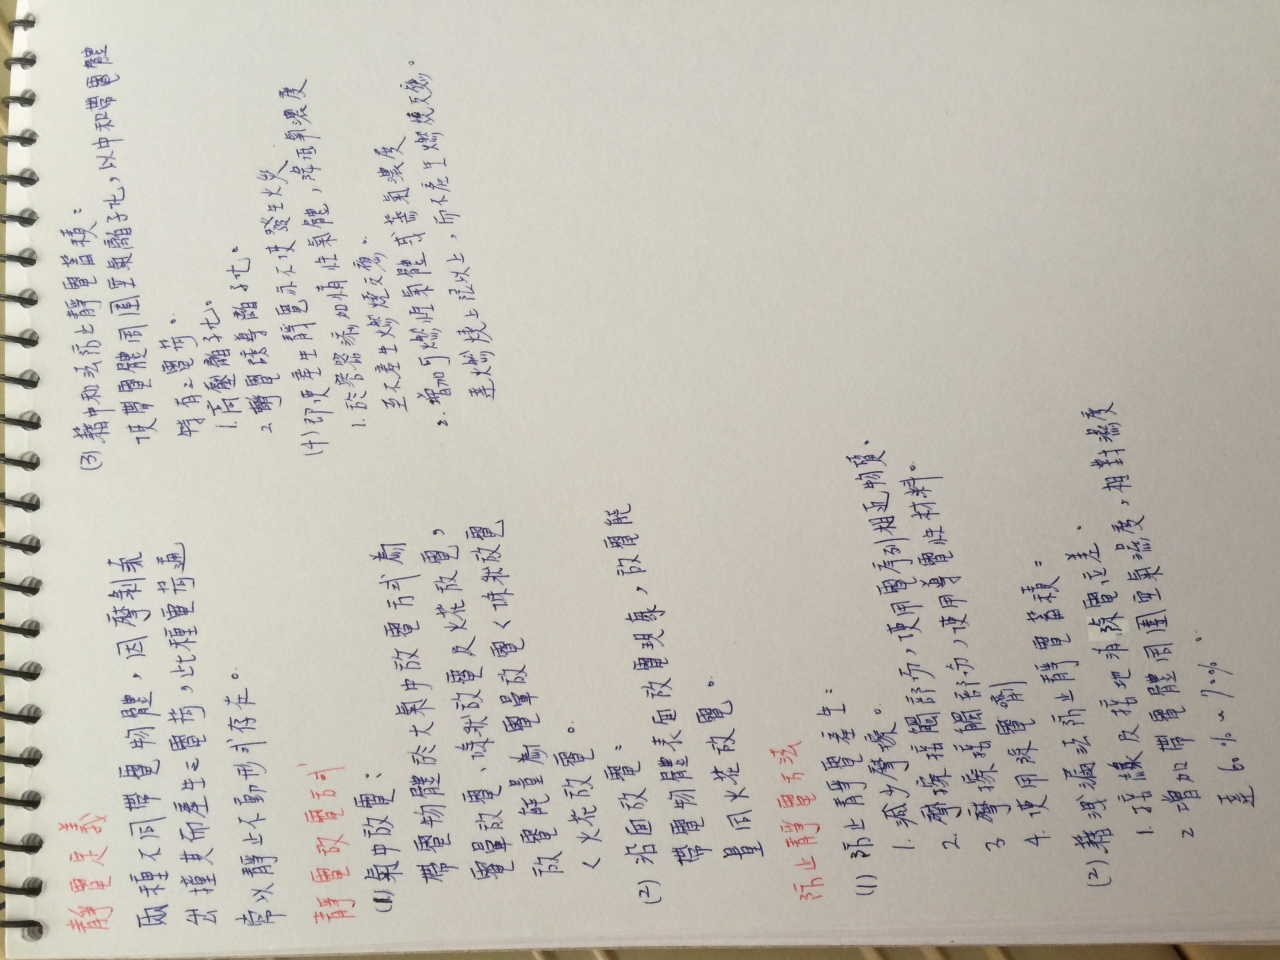 靜電定義
兩種不同帶電物體,因摩剝流
出撞夾而產生之電荷,此種電荷通
常以靜止不動形引存在。
靜電放電方式
(1)氣中放電:
帶電物體於大氣中放電方式為
電暈放電、條狀放電及火花放電,
放電能量為電暈放電<條狀放電
<火花放電。
(2)沿面放電:
帶電物體表面放電現象,放電能
量同火花放電。
防止靜電方法
(1)防止靜電產生:
1. 減少摩擦。
2. 摩擦接觸部份,使用電序列相近物質。
3 摩擦接觸部份,使用導電性材料。
4. 使用除電劑
(2)藉洩漏法防止靜電蓄積:
1. 接線及接地消除電位差.
2 增加帶電體周圍空氣濕度,相對濕度
達60%~70%。
(3)藉中和法防止靜電蓄積:
使帶電體周圍空氣離子化,以中和帶電體
特有之電荷。
1. 高壓離子化。
2 靜電誘導離子化。
(4)即使產生靜電亦不使發生火災
1. 於容器添加惰性氣體,降低氧濃度
至不產生燃燒反應。
2. 增加可燃性氣體或蒸氣濃度
達燃燒上限以上,而不產生燃燒反應。